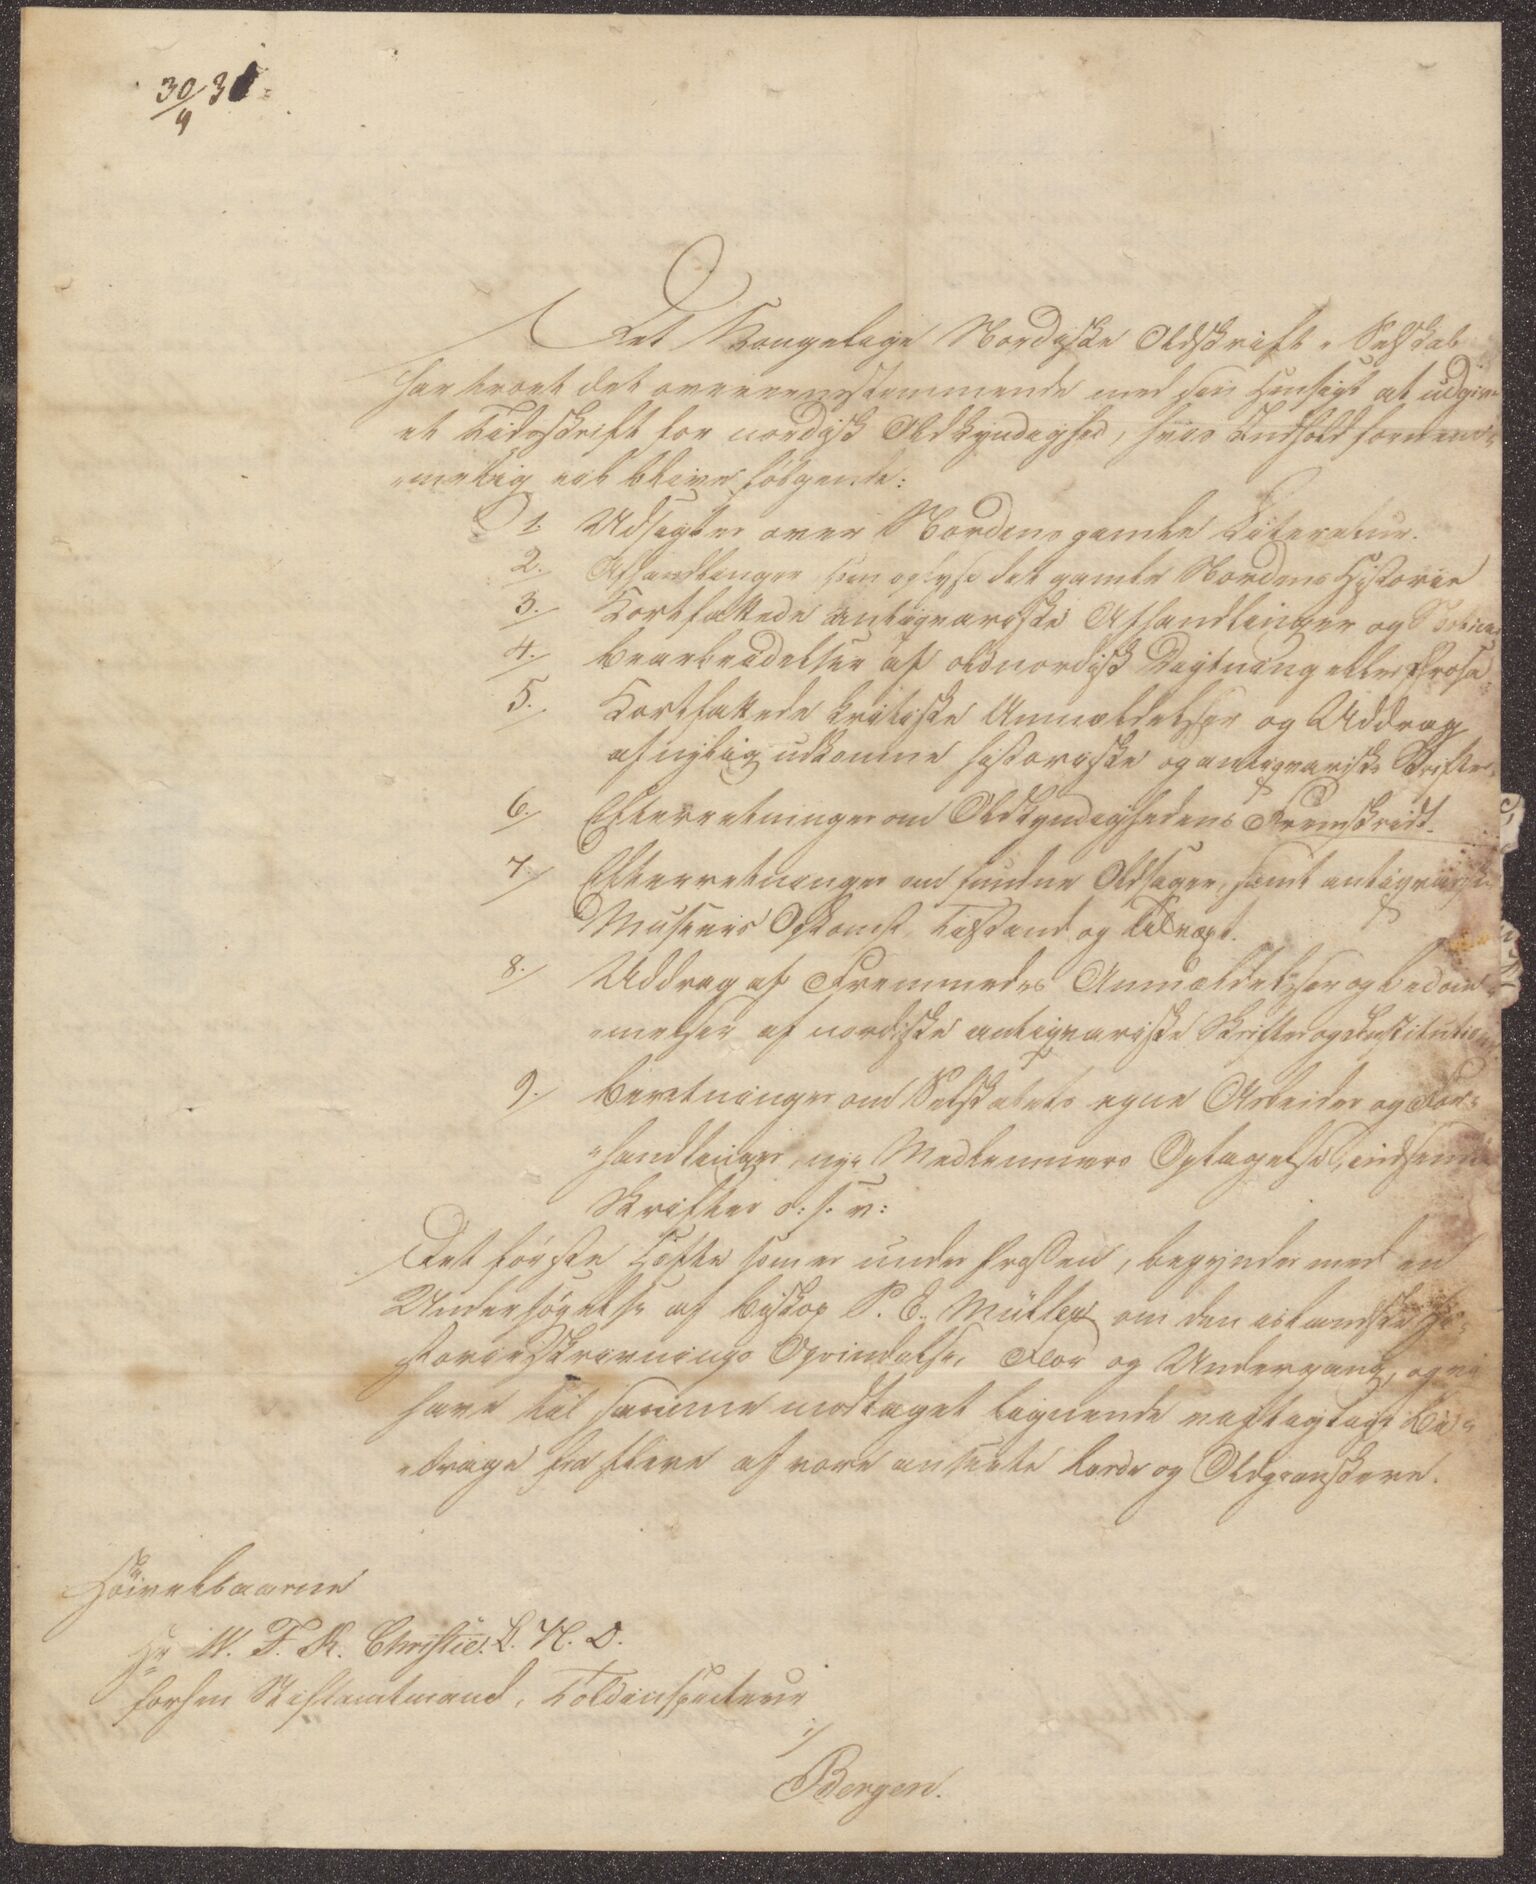 30/4 31
Det Kongelige Nordiske Oldskrift-Selskab
har troet det overeensstemmende med sin Hensigt at udgive
et Tidsskrift for nordisk Oldkyndighed, hvis Indhold fornem-
melig vil blive følgende:
1. Udsigter over Nordens gamle Literatur.
2. Afhandlinger som oplyse det gamle Nordens Historie
3. Kortfattede antiqvariske Afhandlinger og Notices
4. Bearbeidelser af oldnordisk Digtning eller Prosa
5. Kortfattede kritiske Anmeldelser og Uddrag
af nylig udkomne historiske og antiqvariske Skrifter
6. Efterretninger om Oldkyndighedens Fremskridt.
7. Efterretninger om fundne Oldsager, samt antiqvariske
Museers Opkomst, Tilstand og Tilvæxt.
8. Uddrag af Fremmedes Anmældelser og Bedøm-
melser af nordiske antiqvariske Skrifter og Institutioner
9. Beretninger om Selskabets egne Arbeider og For-
handlinger, nye Medlemmers Optagelse, indsendte
Skrifter o: s: v:
Det første Hefte som er under Pressen, begynder med en
Undersøgelse af Biskop P. E. Müller om den islandske Hi-
storieskrivnings Oprindelse, Flor og Undergang, og vi
have til samme modtaget lignende vigtige Bi-
drage fra flere af vore anseete Lærde og Oldgranskere.
Høivelbaarne
Hr W. F. K. Christie. R. N. O.
forhen Stiftamtmand, Toldinspecteur
i/
Bergen.